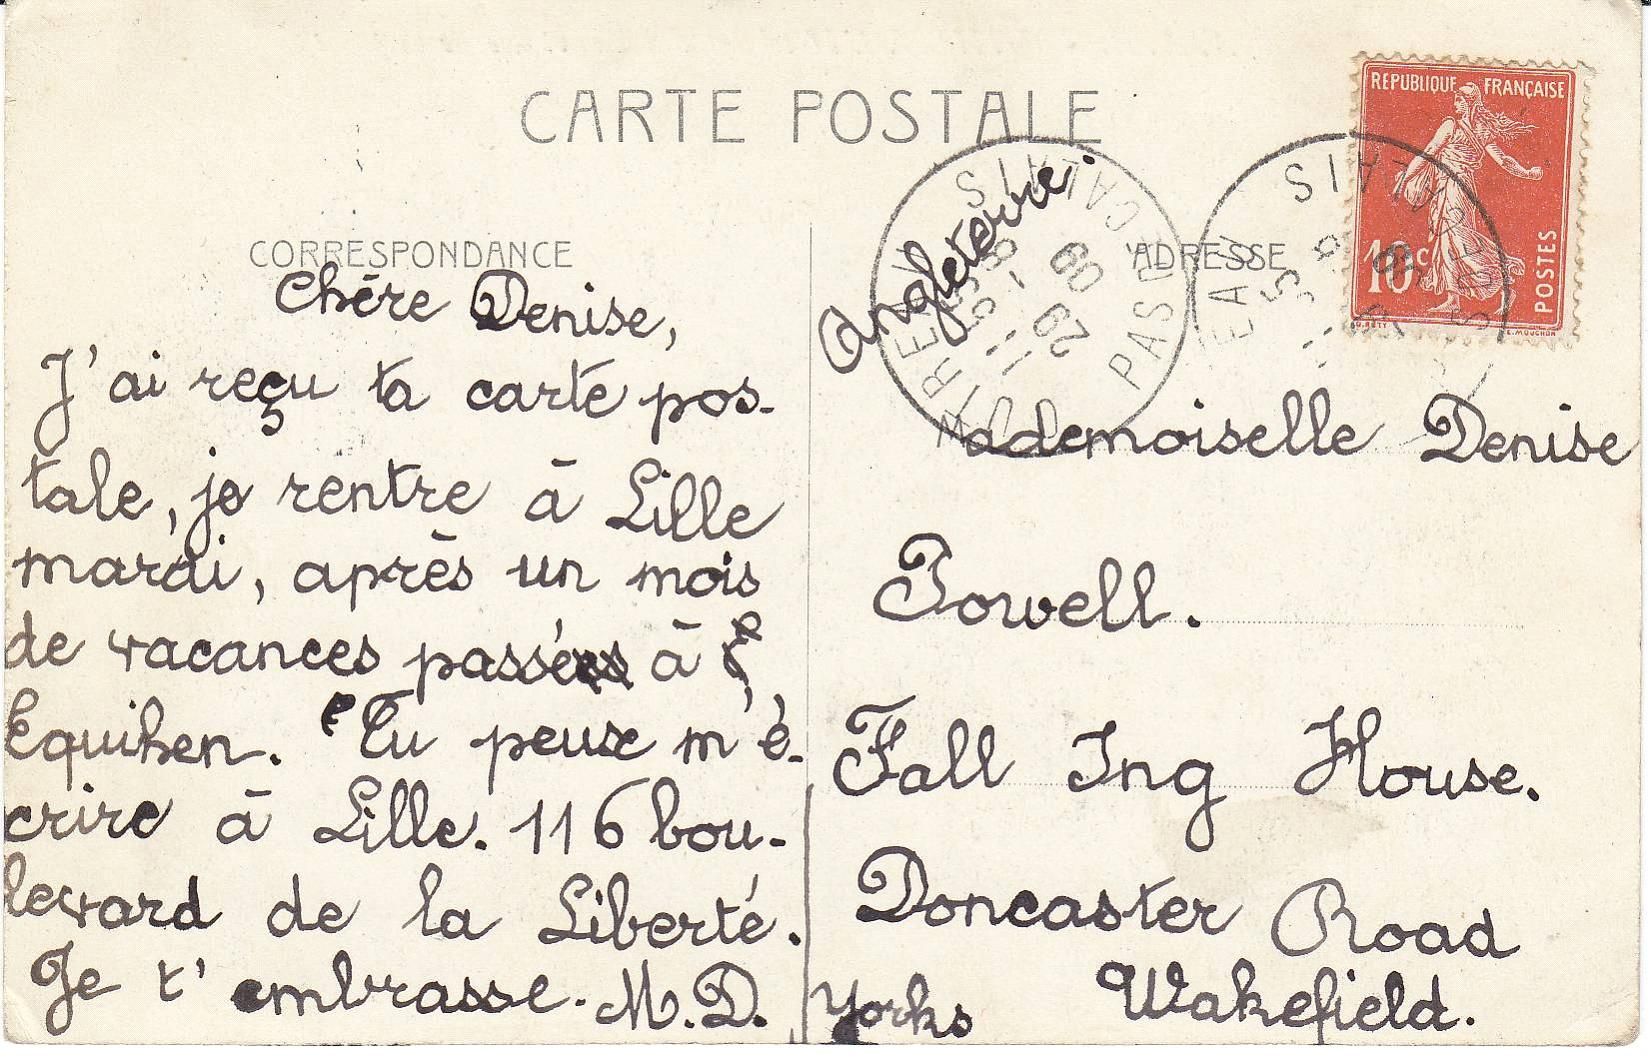 CARTE POSTALE
REPUBLIQUE FRANÇAISE
10c
POSTES
CORRESPONDANCE
Chère Denise,
J'ai reçu ta carte pos-
tale, je rentre à Lille
mardi, après un mois
de vacances passé à
Equihen. Tu peux m'é-
crire à Lille. 116 bou-
levard de la Liberté.
Je t'embrasse. M.D.
ADRESSE
Angleterre
PAS DE CALAIS
29
09
Mademoiselle Denise
Powell.
Fall Ing House.
Doncaster Road
Wakefield.
Yorks